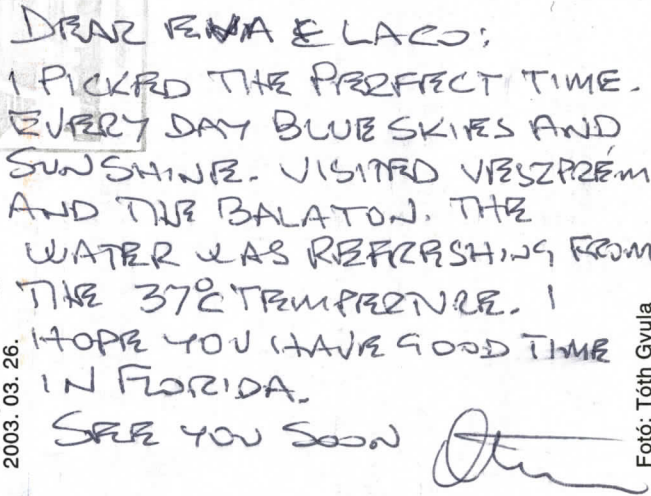 DEAR EVA & LACO:
I PICKED THE PERFECT TIME.
EVERY DAY BLUE SKIES AND
SUNSHINE. VISITED VESZPRÉM
AND THE BALATON. THE
WATER WAS REFRESHING FROM
THE 37°C TEMPERTURE. I
HOPE YOU HAVE GOOD TIME
IN FLORIDA.
SEE YOU SOON
2003. 03. 26.
Fotó: Tóth Gyula